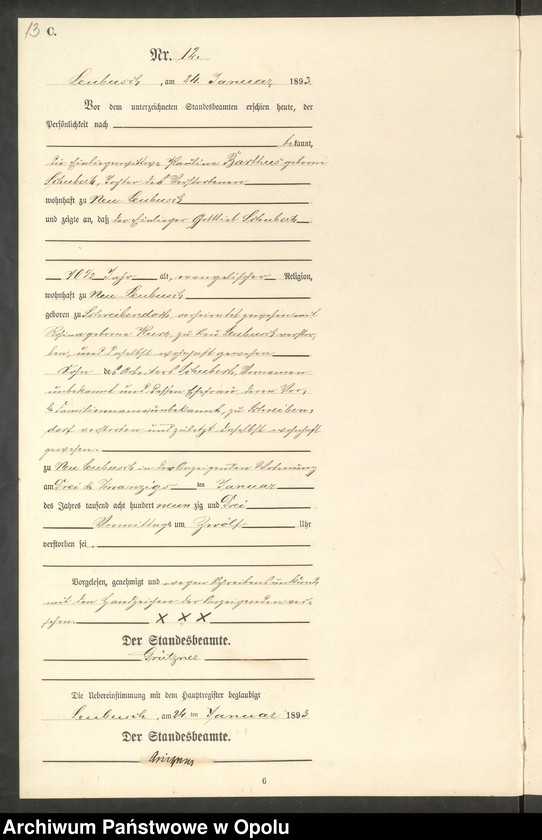 13 C.
Nr. 12.
Leubusch, am 24. Januar 1893.
Vor dem unterzeichneten Standesbeamten erschien heute, der
Persönlichkeit nach
bekannt,
die Einliegerwittwe Pauline Barthus geborne
Schubert, Tochter des Verstorbenen
wohnhaft zu Neu Leubusch
und zeigte an, daß der Einlieger Gottlieb Schubert
70 1/2 Jahr alt, evangelischer Religion,
wohnhaft zu Neu Leubusch
geboren zu Schreibendorf, verheirathet gewesen mit
Rosina geborne Kurz, zu Neu Leubusch verstor-
ben, und daselbst wohnhaft gewesen
Sohn des Arbeiters Schubert, Vornamen
unbekannt und dessen Ehefrau deren Vor-
& Familienname unbekannt, zu Schreiben-
dorf verstorben und zuletzt daselbst wohnhaft
gewesen.
zu Neu Leubusch in der Anzeigenden Wohnung
am Drei & Zwanzigs ten Januar
des Jahres tausend acht hundert neunzig und Drei
Vormittags um Zwölf Uhr
verstorben sei.
Vorgelesen, genehmigt und wegen Schreibensunkunde
mit den Handzeichen der Anzeigenden ver-
sehen. X X X
Der Standesbeamte.
Grützner
Die Uebereinstimmung mit dem Hauptregister beglaubigt
Leubusch, am 24 ten Januar 1893
Der Standesbeamte.
Grützner
6
Archiwum Państwowe w Opolu